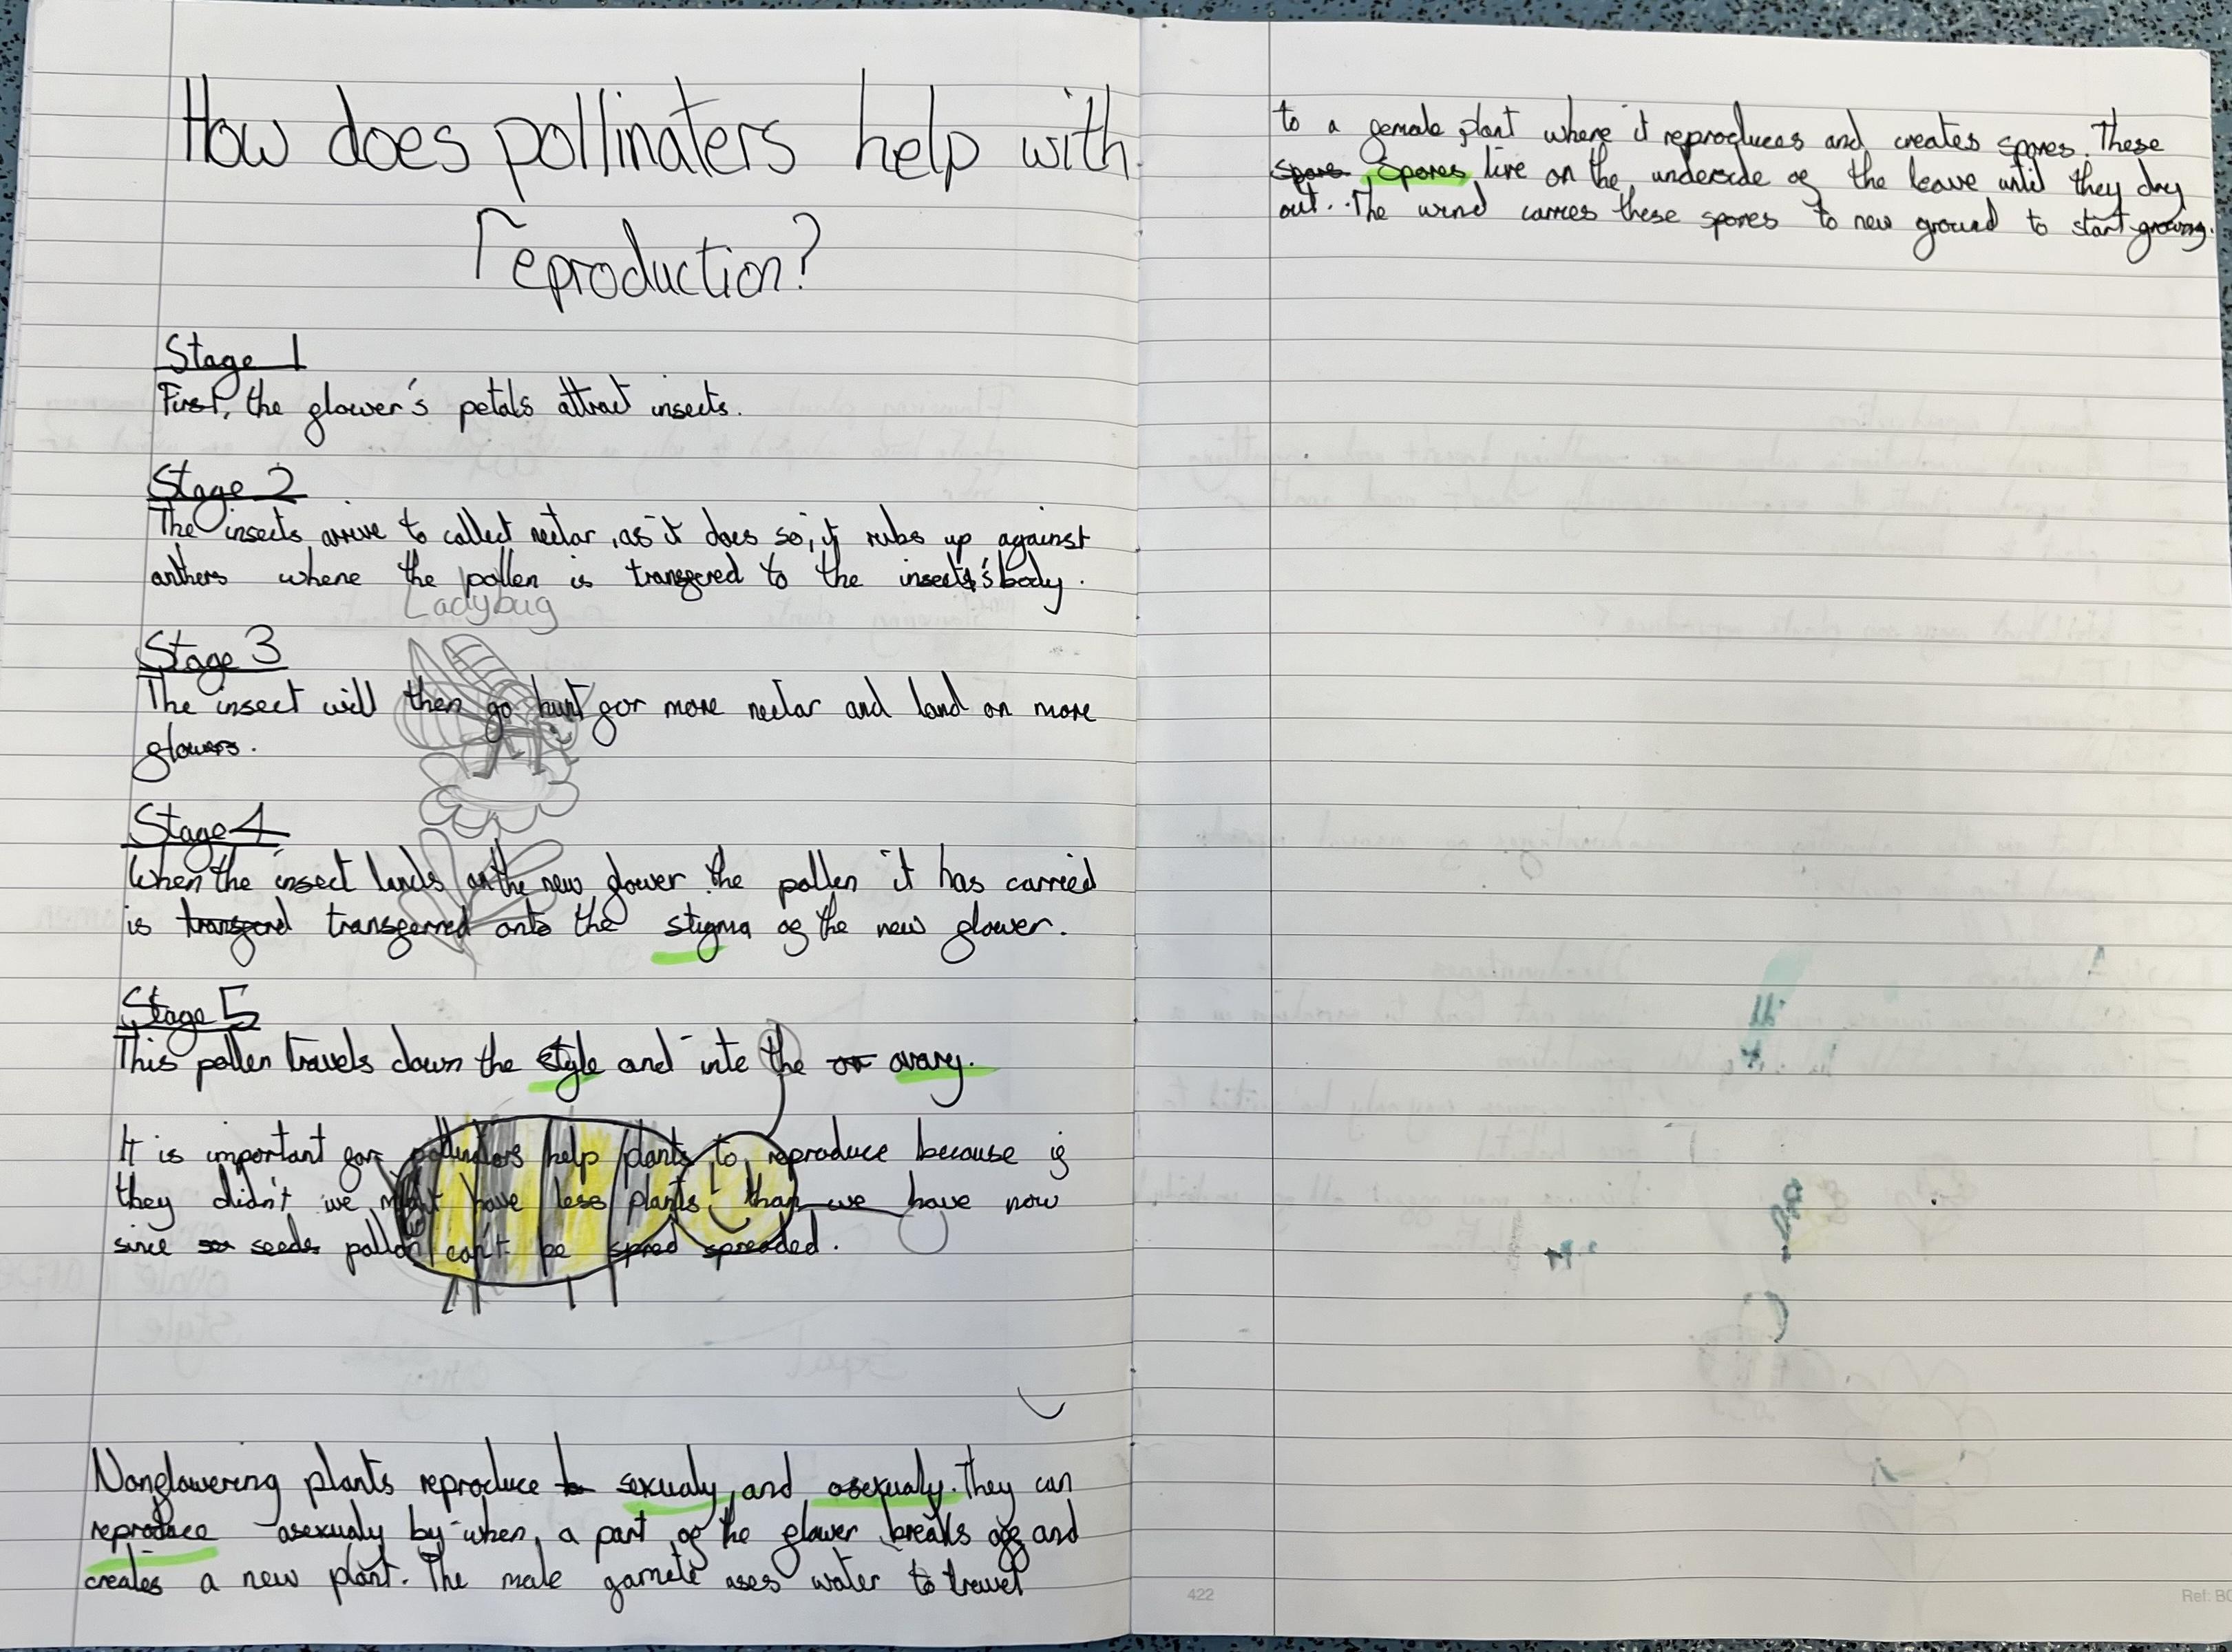 How does pollinaters help with
reproduction?
Stage 1
First, the flower's petals attract insects.
Stage 2
The insects arrive to collect nectar, as it does so, it rubs up against
anthers where the pollen is transfered to the insects's body.
Ladybug
Stage 3
The insect will then go hunt for more nectar and land on more
flowers.
Stage 4
When the insect lands on the new flower the pollen it has carried
is transferd transferred onto the stigma of the new flower.
Stage 5
This pollen travels down the style and into the or ovary.
It is important for pollinators help plants to reproduce because if
they didn't we might have less plants than we have now
since seeds pollon can't be spred spreaded.
Nonflowering plants reproduce to sexualy, and asexualy. They can
reproduce asexualy by when a part of the flower breaks off and
creates a new plant. The male gamete uses water to travel
to a female plant where it reproduces and creates spores. These
spores spores live on the underside of the leave until they dry
out. The wind carries these spores to new ground to start growing.
422
Ref: BC